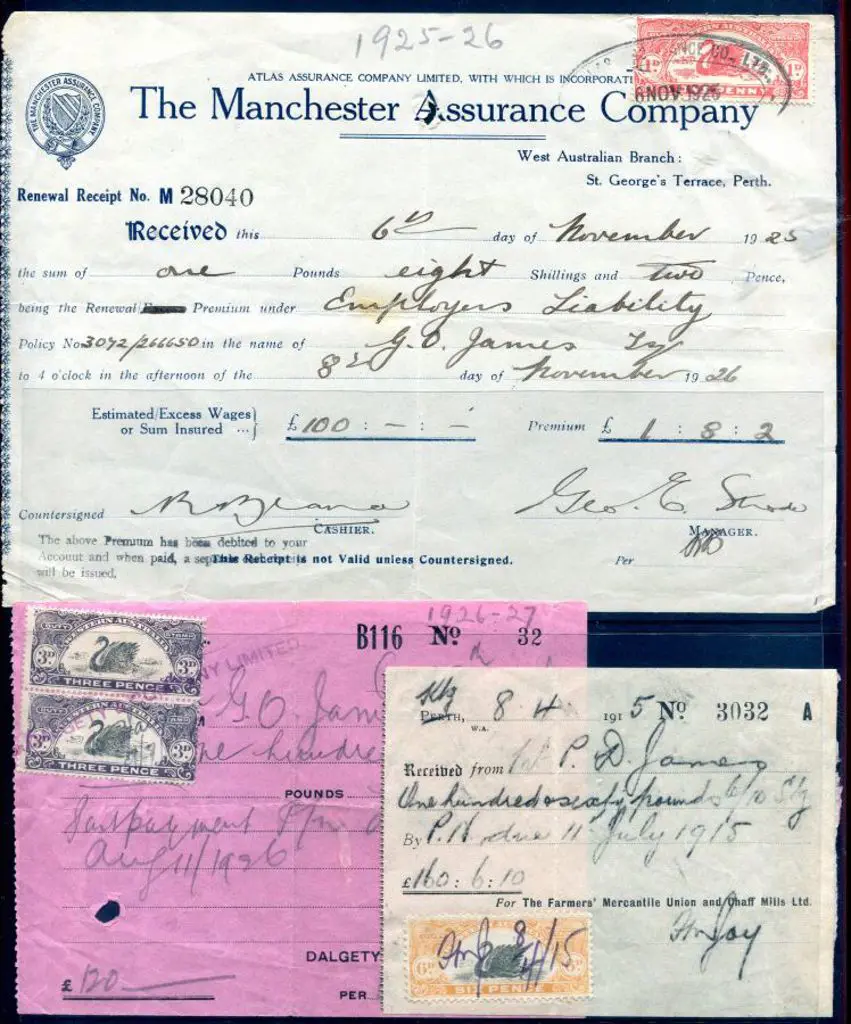 1925-26
ATLAS ASSURANCE COMPANY LIMITED, WITH WHICH IS INCORPORATI
The Manchester Assurance Company
THE MANCHESTER ASSURANCE COMPANY
1D 1D
PENNY
CO. LTD.
6 NOV 1925
West Australian Branch:
St. George's Terrace, Perth.
Renewal Receipt No. M 28040
Received this 6th day of November 1925
the sum of one Pounds eight Shillings and two Pence,
being the Renewal Premium under Employers Liability
Policy No 3092/266650 in the name of G. O. James
to 4 o'clock in the afternoon of the 8th day of November 1926
Estimated/Excess Wages
or Sum Insured ... £ 100 : - : - Premium £ 1 : 8 : 2
Countersigned
CASHIER.
Geo. E.
MANAGER.
The above Premium has been debited to your
Account and when paid, a sep
will be issued.
This Receipt is not Valid unless Countersigned.
Per
1926-27
B116 No 32
WESTERN AUSTRALIA
3D 3D
THREE PENCE
3D 3D
THREE PENCE
NY LIMITED
G. O. Jam
one hundre
POUNDS
Part payment
Aug 11/1926
DALGETY
£ 120
PER
PERTH, W.A. 8.4 1915 No 3032 A
Received from P. D. James
One hundred & sixty pounds 6/10 Stg
By P.N. due 11 July 1915
£160 : 6 : 10
For The Farmers' Mercantile Union and Chaff Mills Ltd.
6D 6D
SIX PENCE
8/4/15